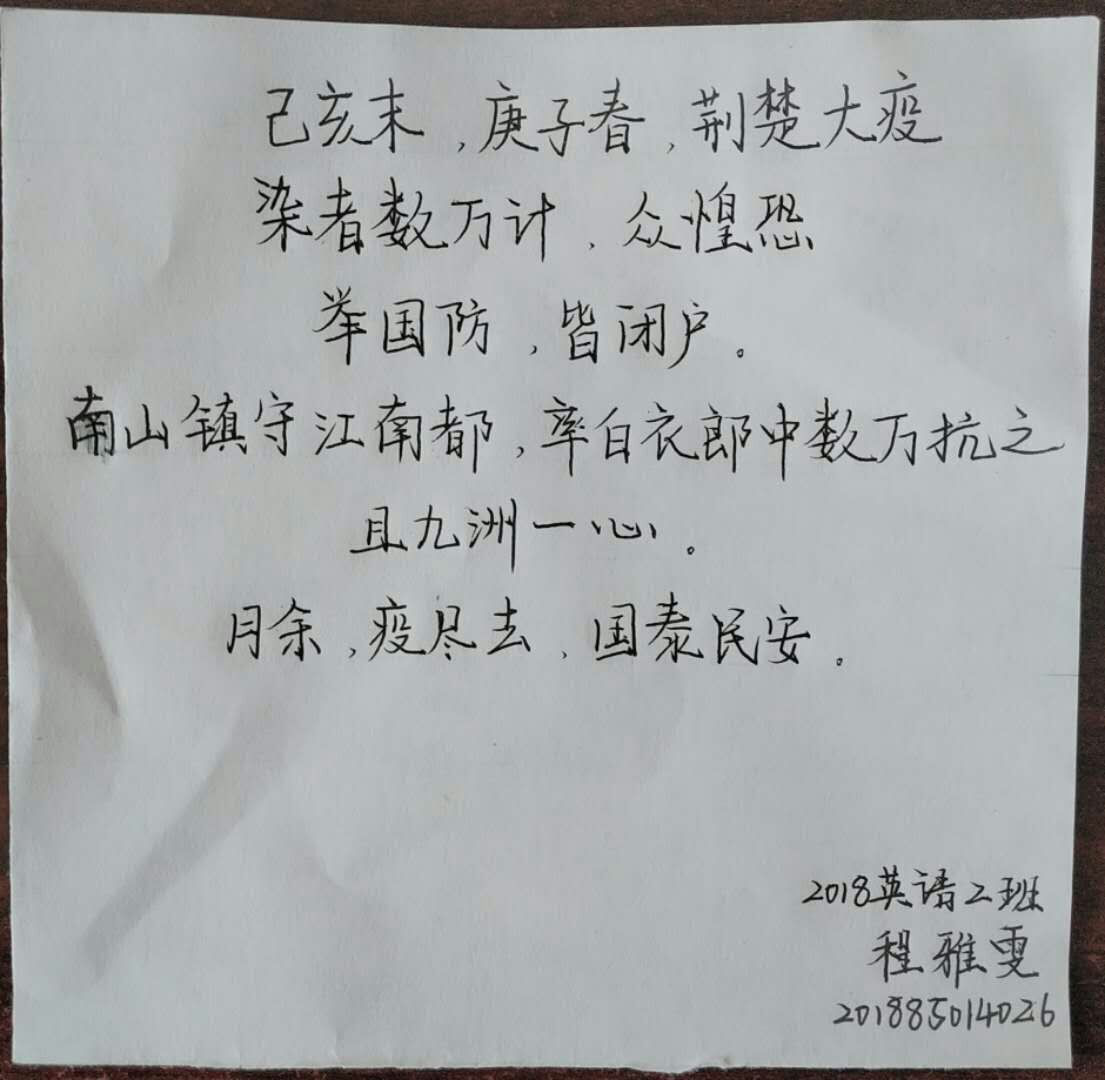 己亥末,庚子春,荆楚大疫
染者数万计,众惶恐
举国防,皆闭户。
南山镇守江南都,率白衣郎中数万抗之
且九洲一心。
月余,疫尽去,国泰民安。
2018英语2班
程雅雯
201885014026